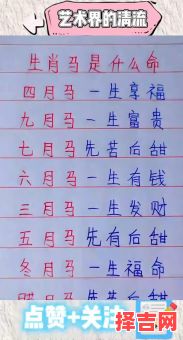 艺术界的清流
生肖马是什么命
四月马 一生享福
九月马 一生富贵
七月马 先苦后甜
六月马 一生有钱
三月马 一生发财
五月马 先有后甜
冬月马 一生福命
腊月马 先苦后甜
点赞+关注
择吉网
zhaijiwang.com